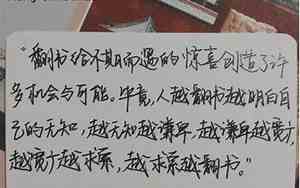 "翻书给不期而遇的惊喜创造了许
多机会与可能。毕竟,人越翻书越明白自
己的无知,越无知越谦卑,越谦卑越宽广,
越宽广越求索,越求索越翻书。"